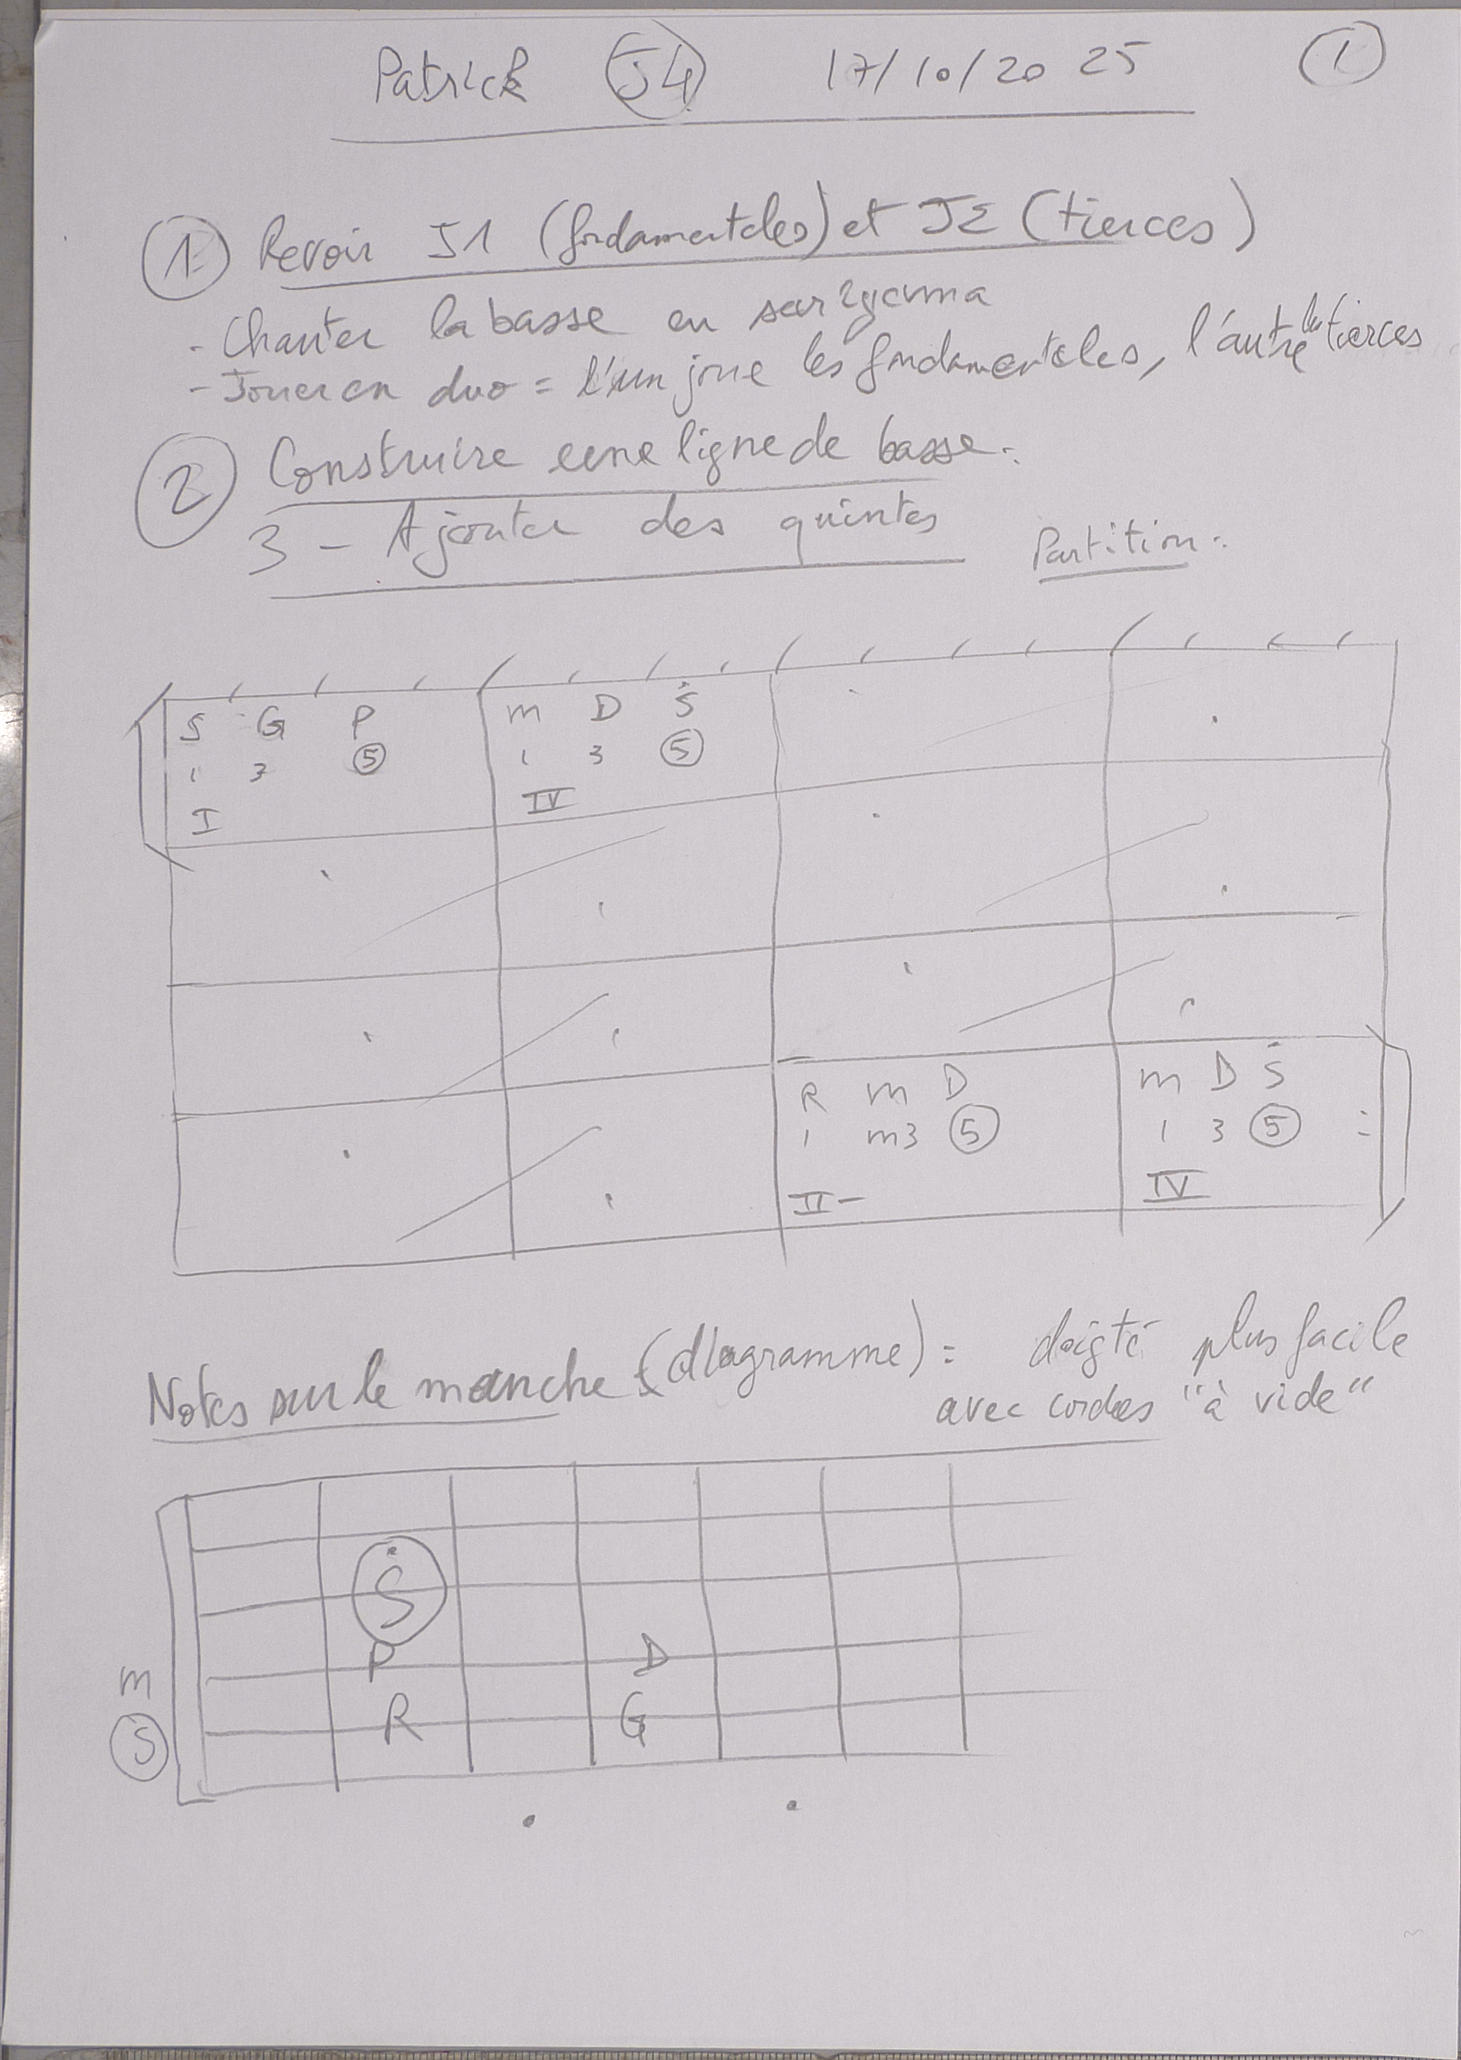 Patrick J4 17/10/2025 1
1 Revoir J1 (fondamentales) et J2 (tierces)
- Chanter la basse en sargama
- Jouer en duo = l'un joue les fondamentales, l'autre les tierces
2 Construire une ligne de basse.
3 - Ajouter des quintes
Partition:
S G P m D Ṡ
1 3 5 1 3 5
I IV
R m D m D Ṡ
1 m3 5 1 3 5 :
II- IV
Notes sur le manche (diagramme) = doigté plus facile
avec cordes "à vide"
Ṡ
m P D
S R G